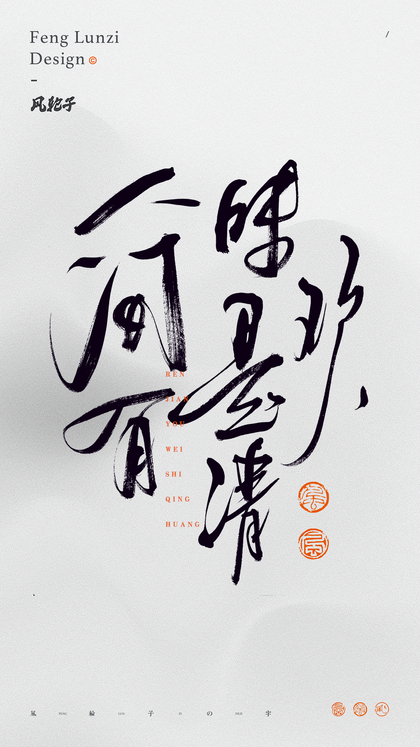 Feng Lunzi
Design©
-
风轮子
/
人间有
味是清
欢
REN
JIAN
YOU
WEI
SHI
QING
HUANG
風 輪 子 の 字